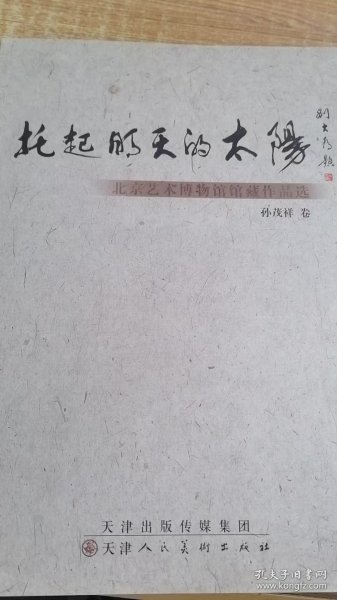 托起明天的太陽
刘大为题
北京艺术博物馆馆藏作品选
孙茂祥 卷
天津出版传媒集团
天津人民美術出版社
孔夫子旧书网